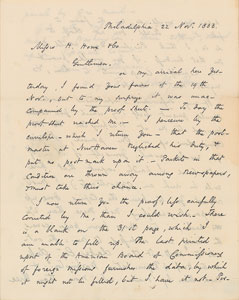 Philadelphia 22 Nov. 1852.
Messrs H. Howe & Co.
Gentlemen.
on my arrival here yes-
terday, I found your favor of the 19th
Nov., but to my surprise it was unac-
companied by the proof sheet. To day the
proof-sheet reached me. I perceive by the
envelope which I return you that the post-
master at New Haven neglected his duty, &
put no post mark upon it. Packets in that
condition are thrown away among Newspapers,
& must take their chance.
I now return you the proof, less carefully
corrected by me, than I could wish. There
is a blank on the 31st page, which I
am unable to fill up. The last printed
report of the American Board of Commissioners
of foreign missions furnishes the data, by which
it might not be filled, but I have it not.